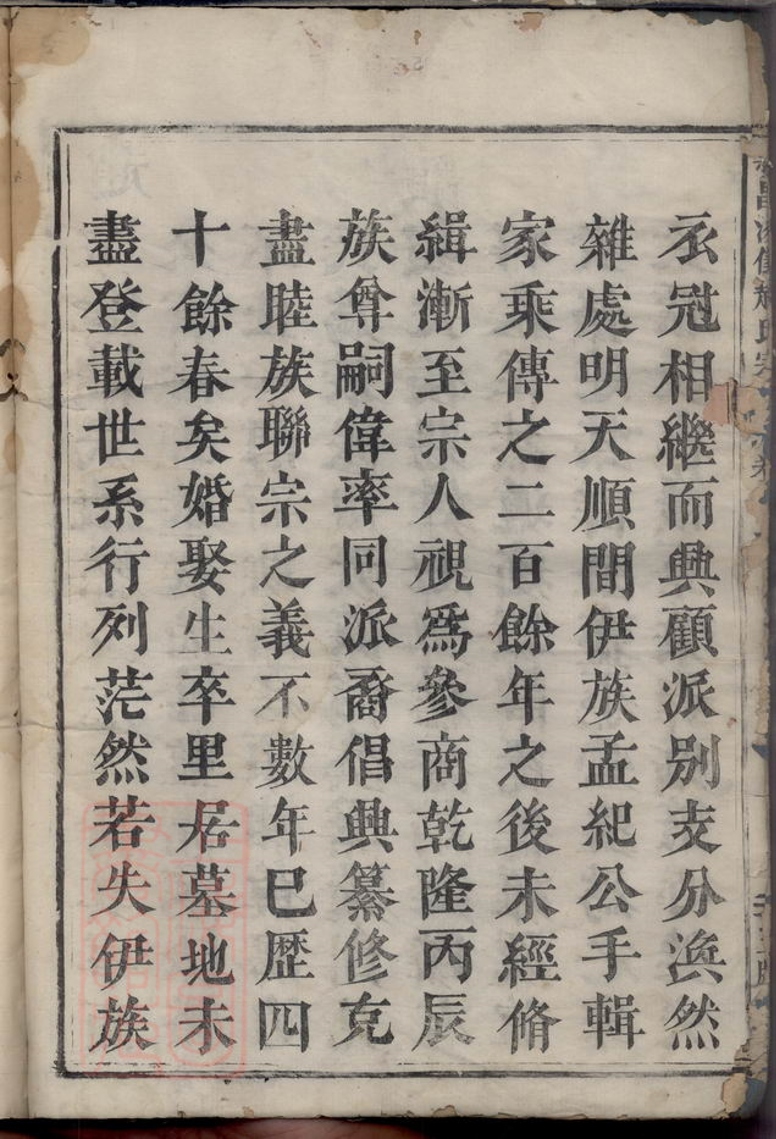 衣冠相繼而興顧派別支分渙然
雜處明天順間伊族孟紀公手輯
家乘傳之二百餘年之後未經脩
緝漸至宗人視爲參商乾隆丙辰
族尊嗣偉率同派裔倡興纂修克
盡睦族聯宗之義不數年已歷四
十餘春矣婚娶生卒里居墓地未
盡登載世系行列茫然若失伊族